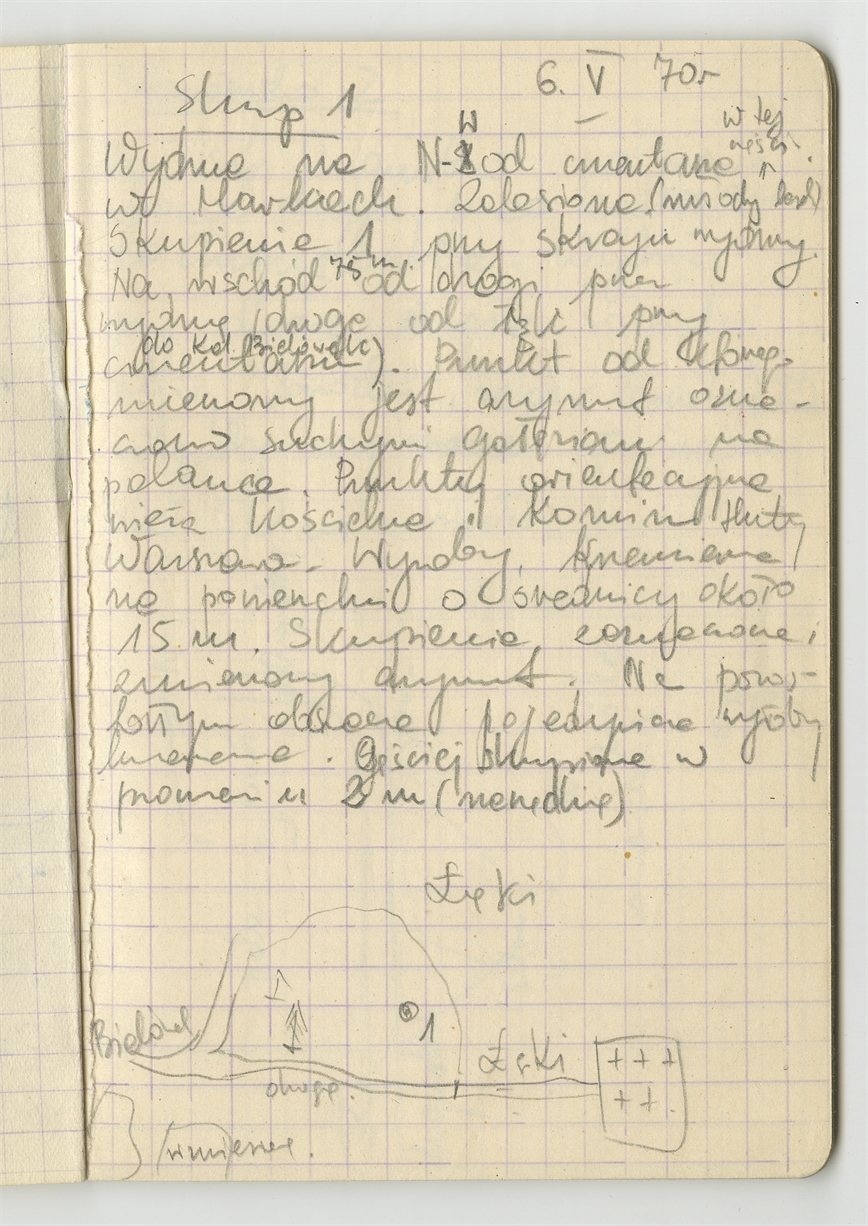 6. V 70r
Skup 1
Wydma na N-W od cmentarza w tej części
w Markach. Zalesiona (młody las)
Skupienie 1 przy skraju wydmy
Na wschód 75 m od drogi przez
wydmę (droga od przy
cmentarzu do Kol. Bielówek). Punkt od którego
mierzony jest azymut ozna-
czono suchymi gałęziami na
polance. Punkty orientacyjne
wieża Kościelna i Komin Huty
Warszawa. Wyroby krzemienne
na powierzchni o średnicy około
15 m. Skupienie zaznaczone i
zmierzony azymut. Na pozos-
tałym obszarze pojedyncze wyroby
krzemienne. Gęściej skupione w
promieniu 3 m (narzędzia)
Łąki
1
Łąki
droga.